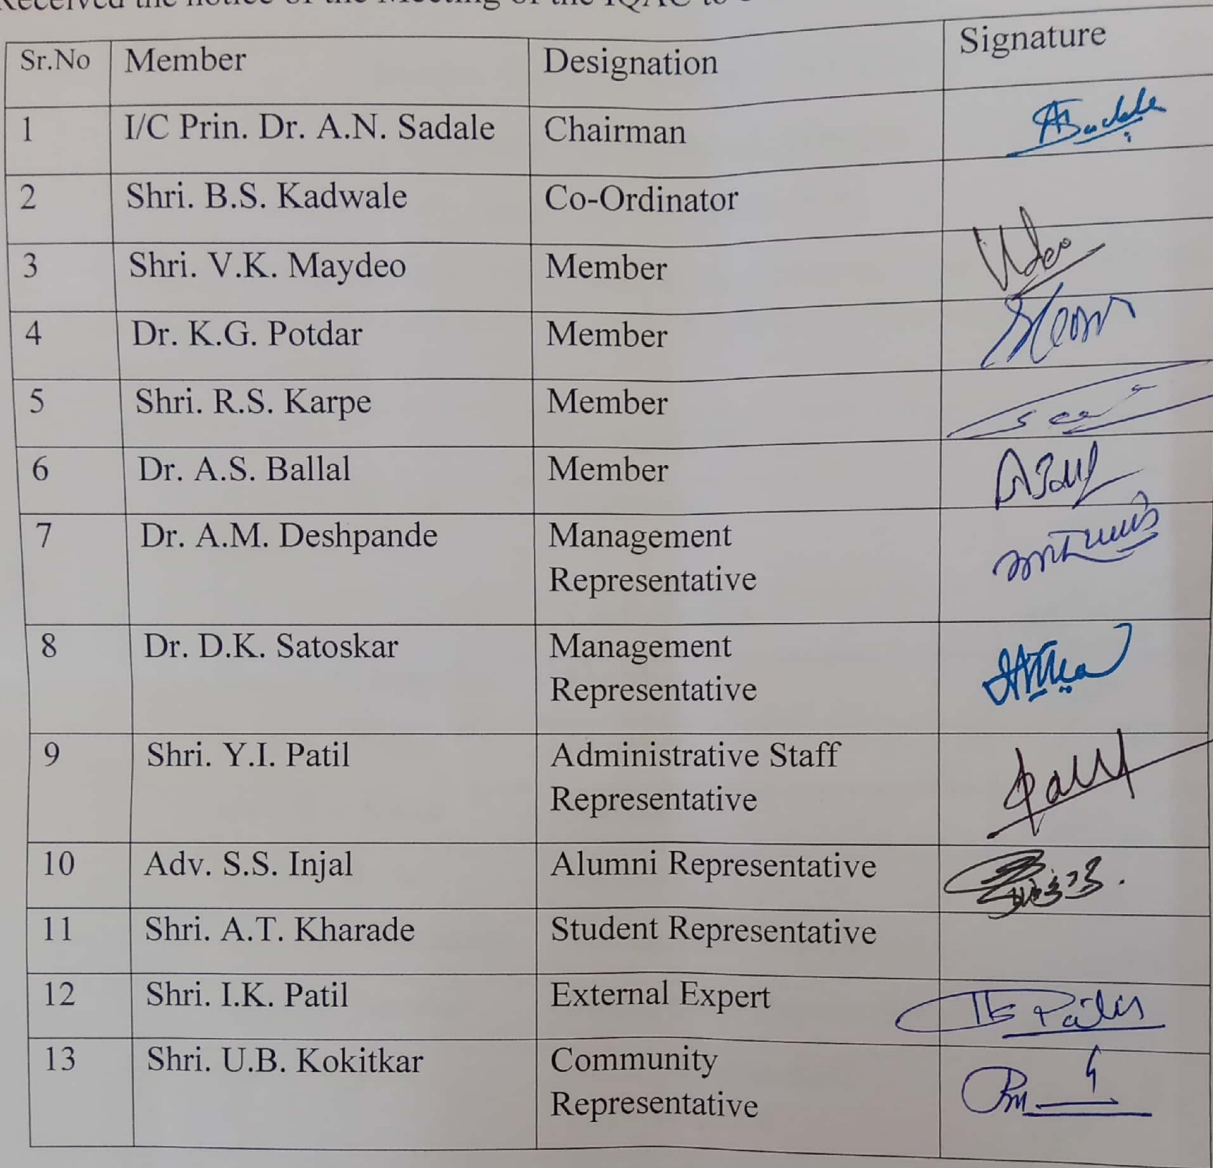 Received the notice of the Meeting of the IQAC to
Sr.No Member Designation Signature
1 I/C Prin. Dr. A.N. Sadale Chairman
2 Shri. B.S. Kadwale Co-Ordinator
3 Shri. V.K. Maydeo Member
4 Dr. K.G. Potdar Member
5 Shri. R.S. Karpe Member
6 Dr. A.S. Ballal Member
7 Dr. A.M. Deshpande Management
Representative
8 Dr. D.K. Satoskar Management
Representative
9 Shri. Y.I. Patil Administrative Staff
Representative
10 Adv. S.S. Injal Alumni Representative
11 Shri. A.T. Kharade Student Representative
12 Shri. I.K. Patil External Expert
13 Shri. U.B. Kokitkar Community
Representative